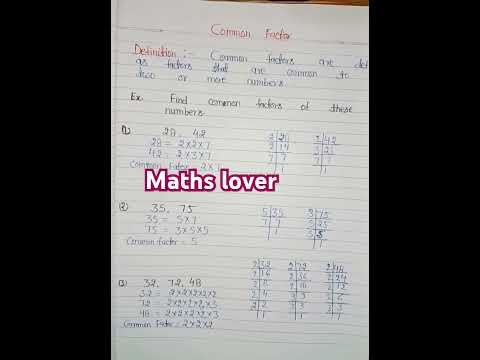 Common Factor
Definition :- Common factors are def
as factors that are common to
two or more numbers
Ex. Find common factors of these
numbers
1) 28, 42
28 = 2×2×7
42 = 2×3×7
Common Factor = 2×7
2 28
2 14
7 7
1
2 42
3 21
7 7
1
Maths lover
(2) 35, 75
35 = 5×7
75 = 3×5×5
Common factor = 5
5 35
7 7
1
3 75
5 25
5 5
1
(3) 32, 72, 48
32 = 2×2×2×2×2
72 = 2×2×2×2×3
48 = 2×2×2×2×3
Common Factor = 2×2×2
2 32
2 16
2 8
2 4
2 2
1
2 72
2 36
2 18
3 9
3 3
1
2 48
2 24
2 12
2 6
3 3
1